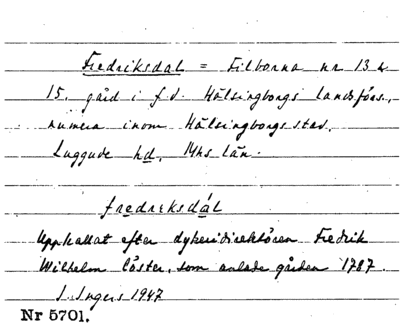 Fredriksdal = Filborna nr 13 &
15, gård i f.d. Hälsingborgs landsförs.,
numera inom Hälsingborgs stad,
Luggude hd, Mhs län.
fredreksdál
Uppkallat efter dykeridirektören Fredrik
Wilhelm Cöster, som anlade gården 1787.
I. Ingers 1947
Nr 5701.